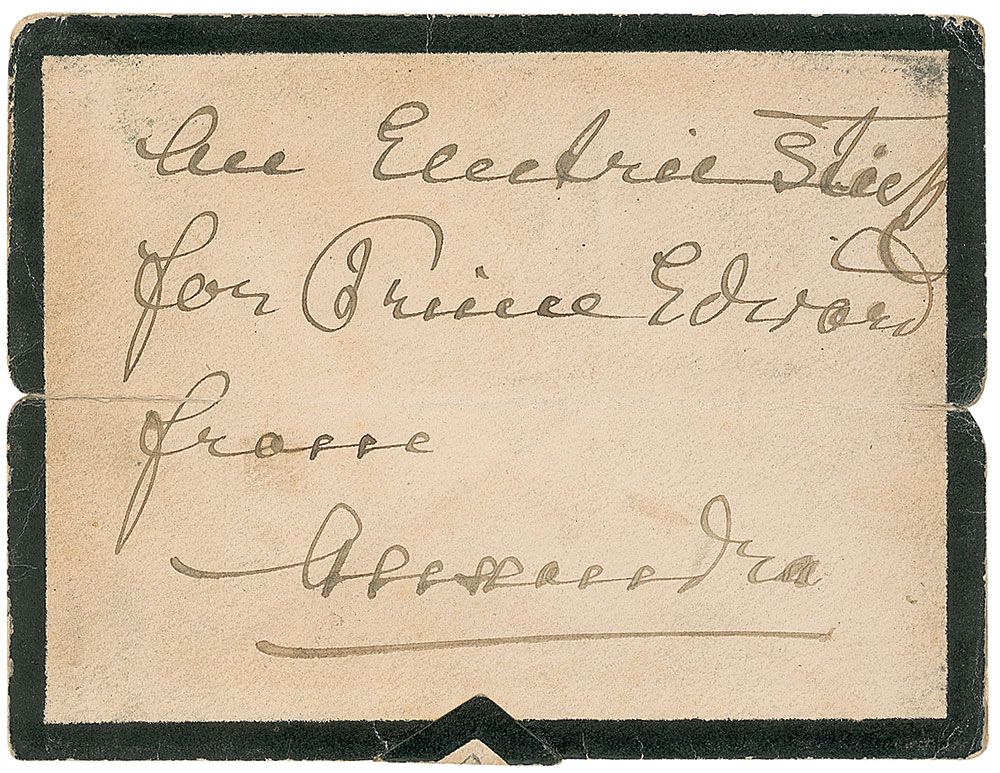 An Electric Stick
for Prince Edward
from
Alexandra